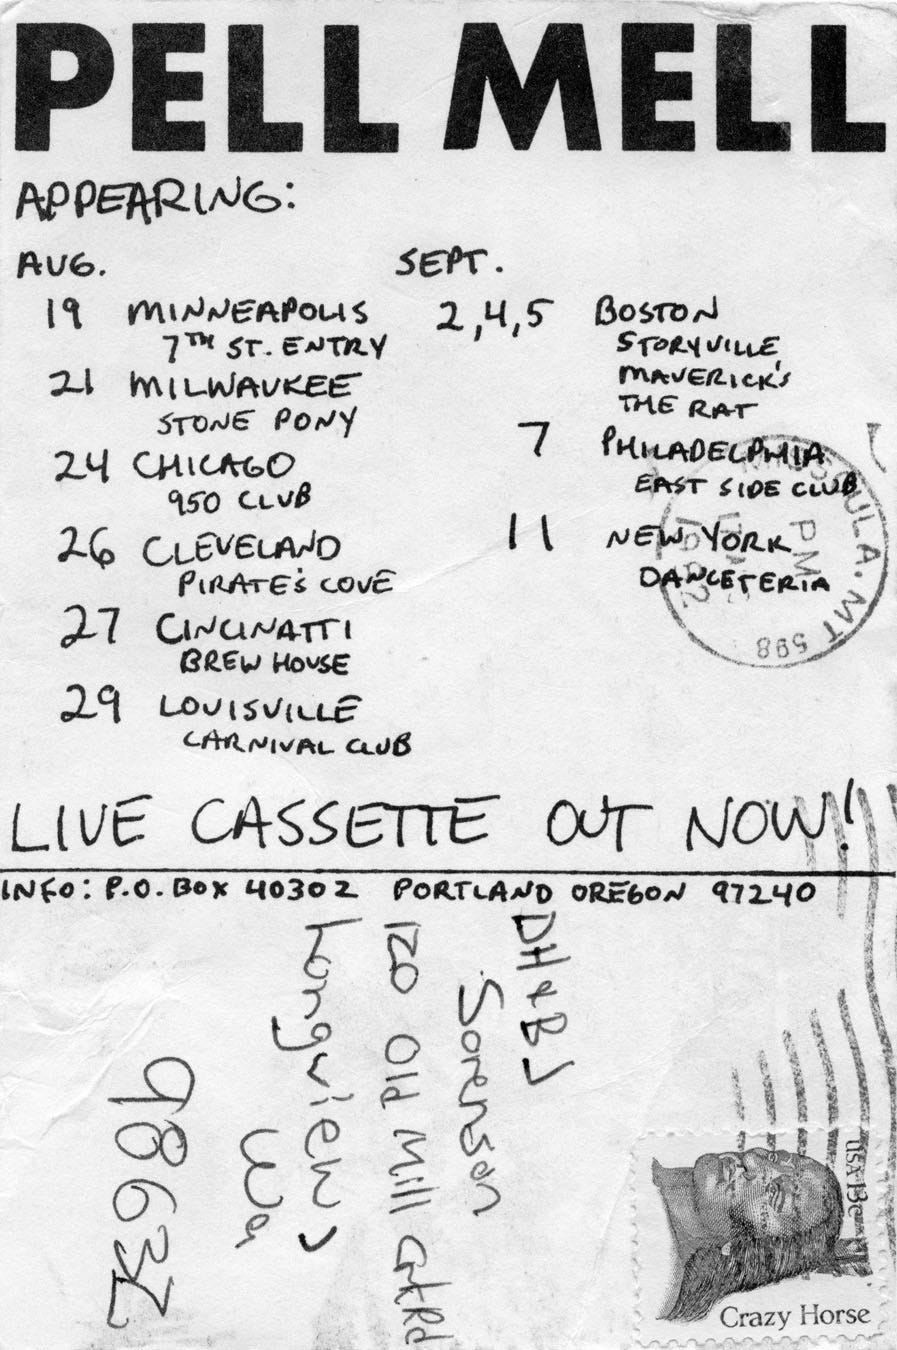 PELL MELL
APPEARING:
AUG.
19 MINNEAPOLIS
7TH ST. ENTRY
21 MILWAUKEE
STONE PONY
24 CHICAGO
950 CLUB
26 CLEVELAND
PIRATE'S COVE
27 CINCINATTI
BREW HOUSE
29 LOUISVILLE
CARNIVAL CLUB
SEPT.
2,4,5 BOSTON
STORYVILLE
MAVERICK'S
THE RAT
7 PHILADELPHIA
EAST SIDE CLUB
11 NEW YORK
DANCETERIA
LIVE CASSETTE OUT NOW!
INFO: P.O. BOX 40302 PORTLAND OREGON 97240
MISSOULA, MT 598
PM
1982
DH & BJ
Sorenson
120 Old Mill
Longview,
Wa
98632
USA 13c
Crazy Horse